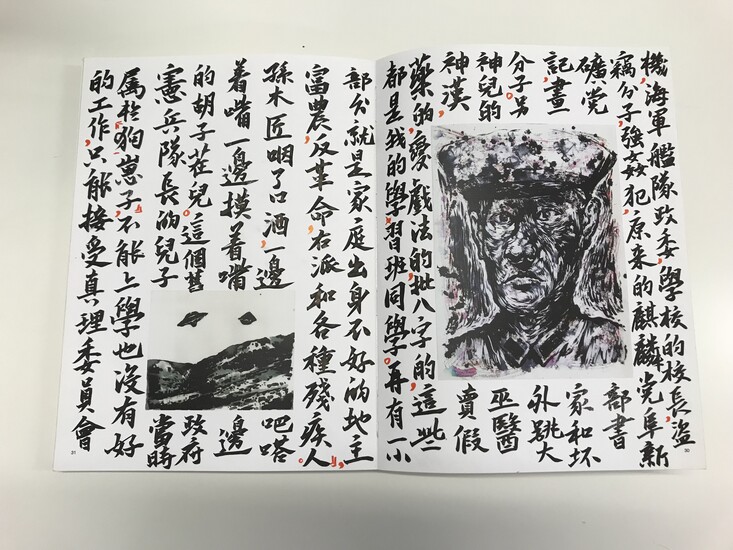 機,海軍艦隊政委,學校的校長,盜
竊分子,強姦犯,原来的麒麟党阜新
礦党部書
記,畫家和坏
分子,另外跳大
神兒的巫醫
神漢,賣假
藥的,愛戲法的,批八字的,這些
都是我的學習班同學。再有一小
30
部分就是家庭出身不好的地主
富農,反革命,右派和各種殘疾人。
孫木匠咽了口酒,一邊吧嗒
着嘴一邊摸着嘴邊
的胡子茬兒。這個舊政府
憲兵隊長的兒子當時
属於狗崽子,不能上學也沒有好
的工作,只能接受真理委員會
31